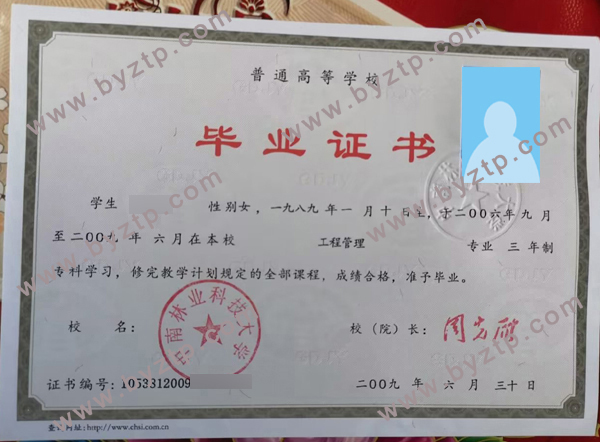 普通高等学校
毕业证书
学生 性别女，一九八九年一月十日生，于二〇〇六年九月
至二〇〇九年六月在本校 工程管理 专业 三年制
专科学习，修完教学计划规定的全部课程，成绩合格，准予毕业。
校 名： 校（院）长：
中南林业科技大学
证书编号：1053312009 二〇〇九年 六月 三十日
查询网址：http://www.chsi.com.cn
www.byztp.com
www.byztp.com
www.byztp.com
www.byztp.com
www.byztp.com